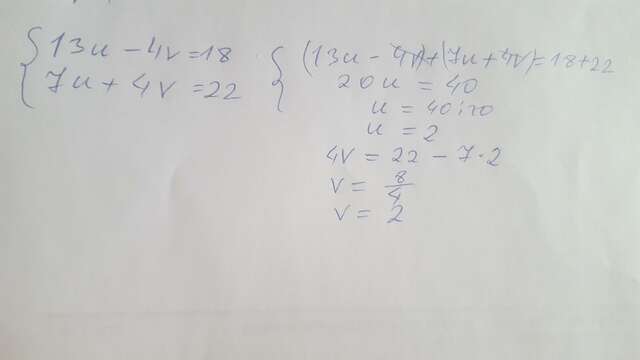 13u - 4v = 18
7u + 4v = 22
(13u - 4v) + (7u + 4v) = 18 + 22
20u = 40
u = 40:20
u = 2
4v = 22 - 7·2
v = 8/4
v = 2